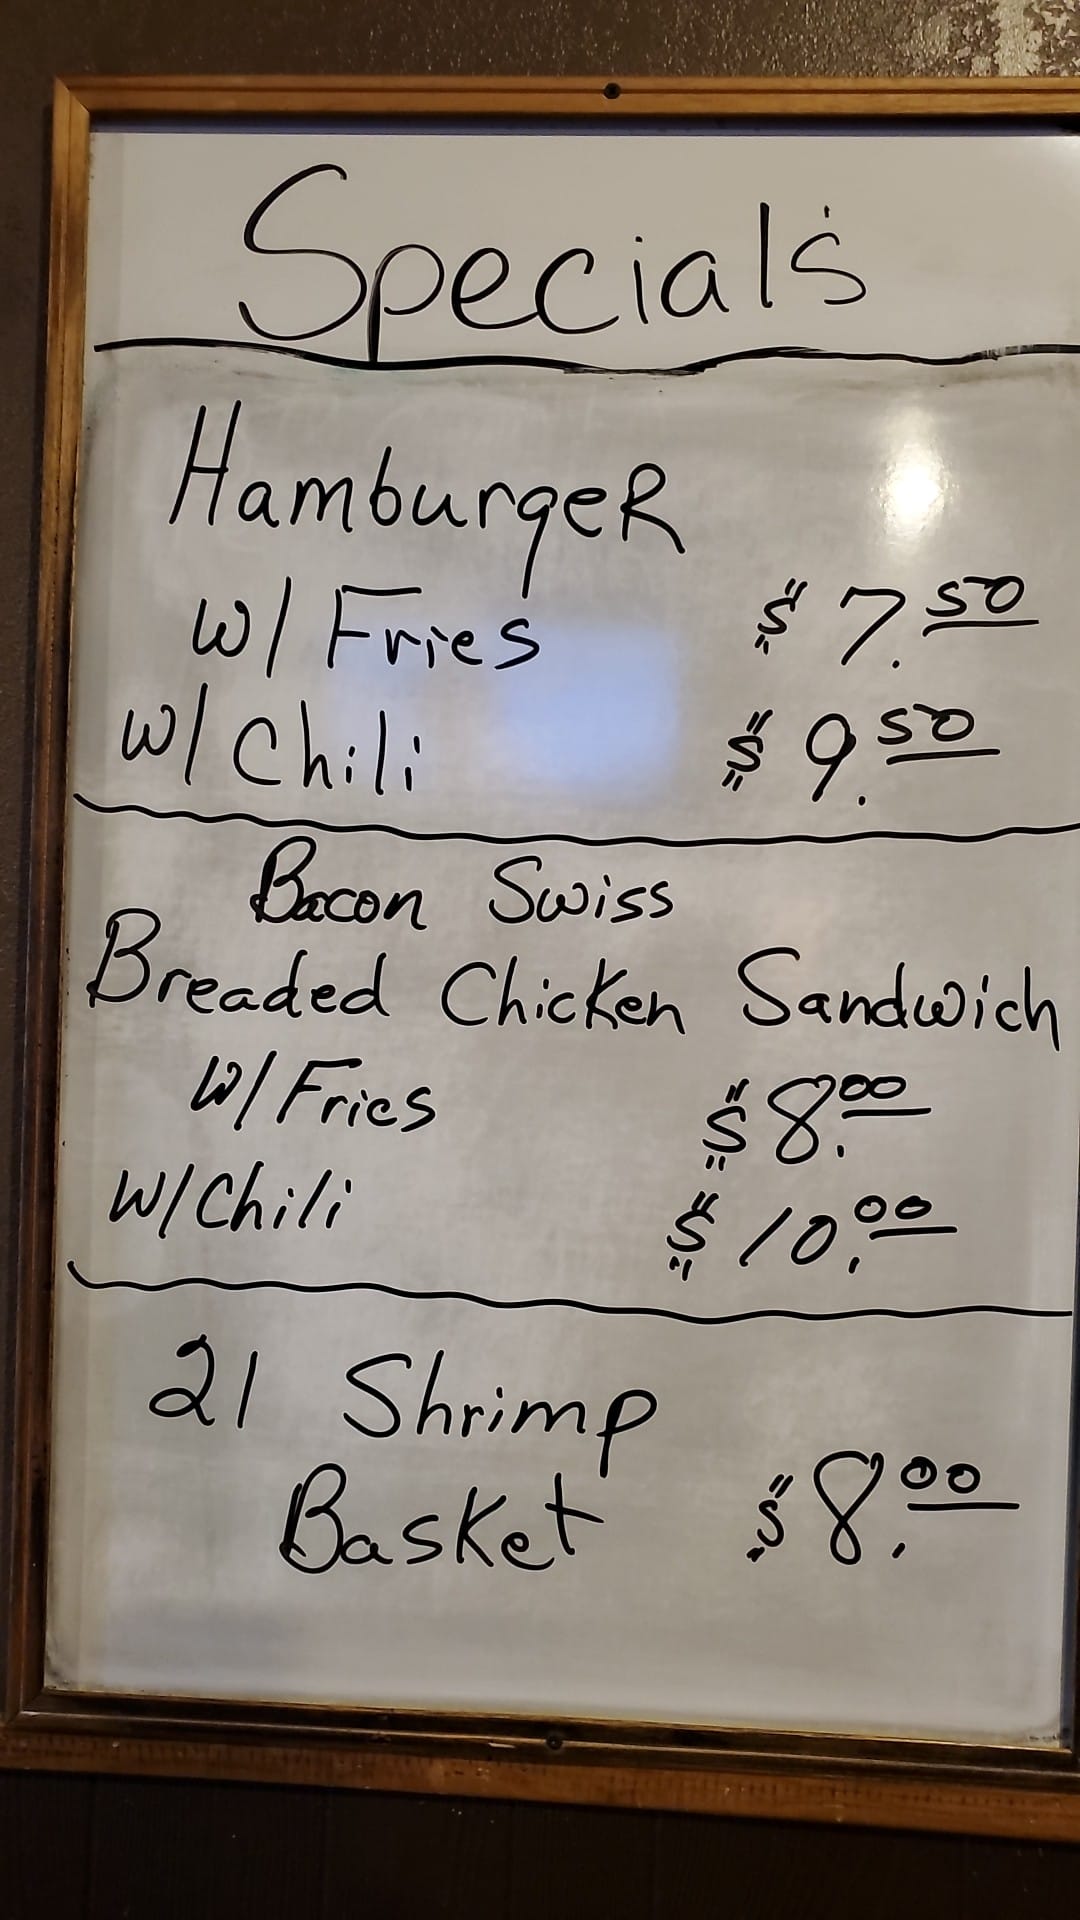 Special's
Hamburger
W/ Fries $7.50
W/ Chili $9.50
Bacon Swiss
Breaded Chicken Sandwich
W/ Fries $8.00
W/ Chili $10.00
21 Shrimp
Basket $8.00